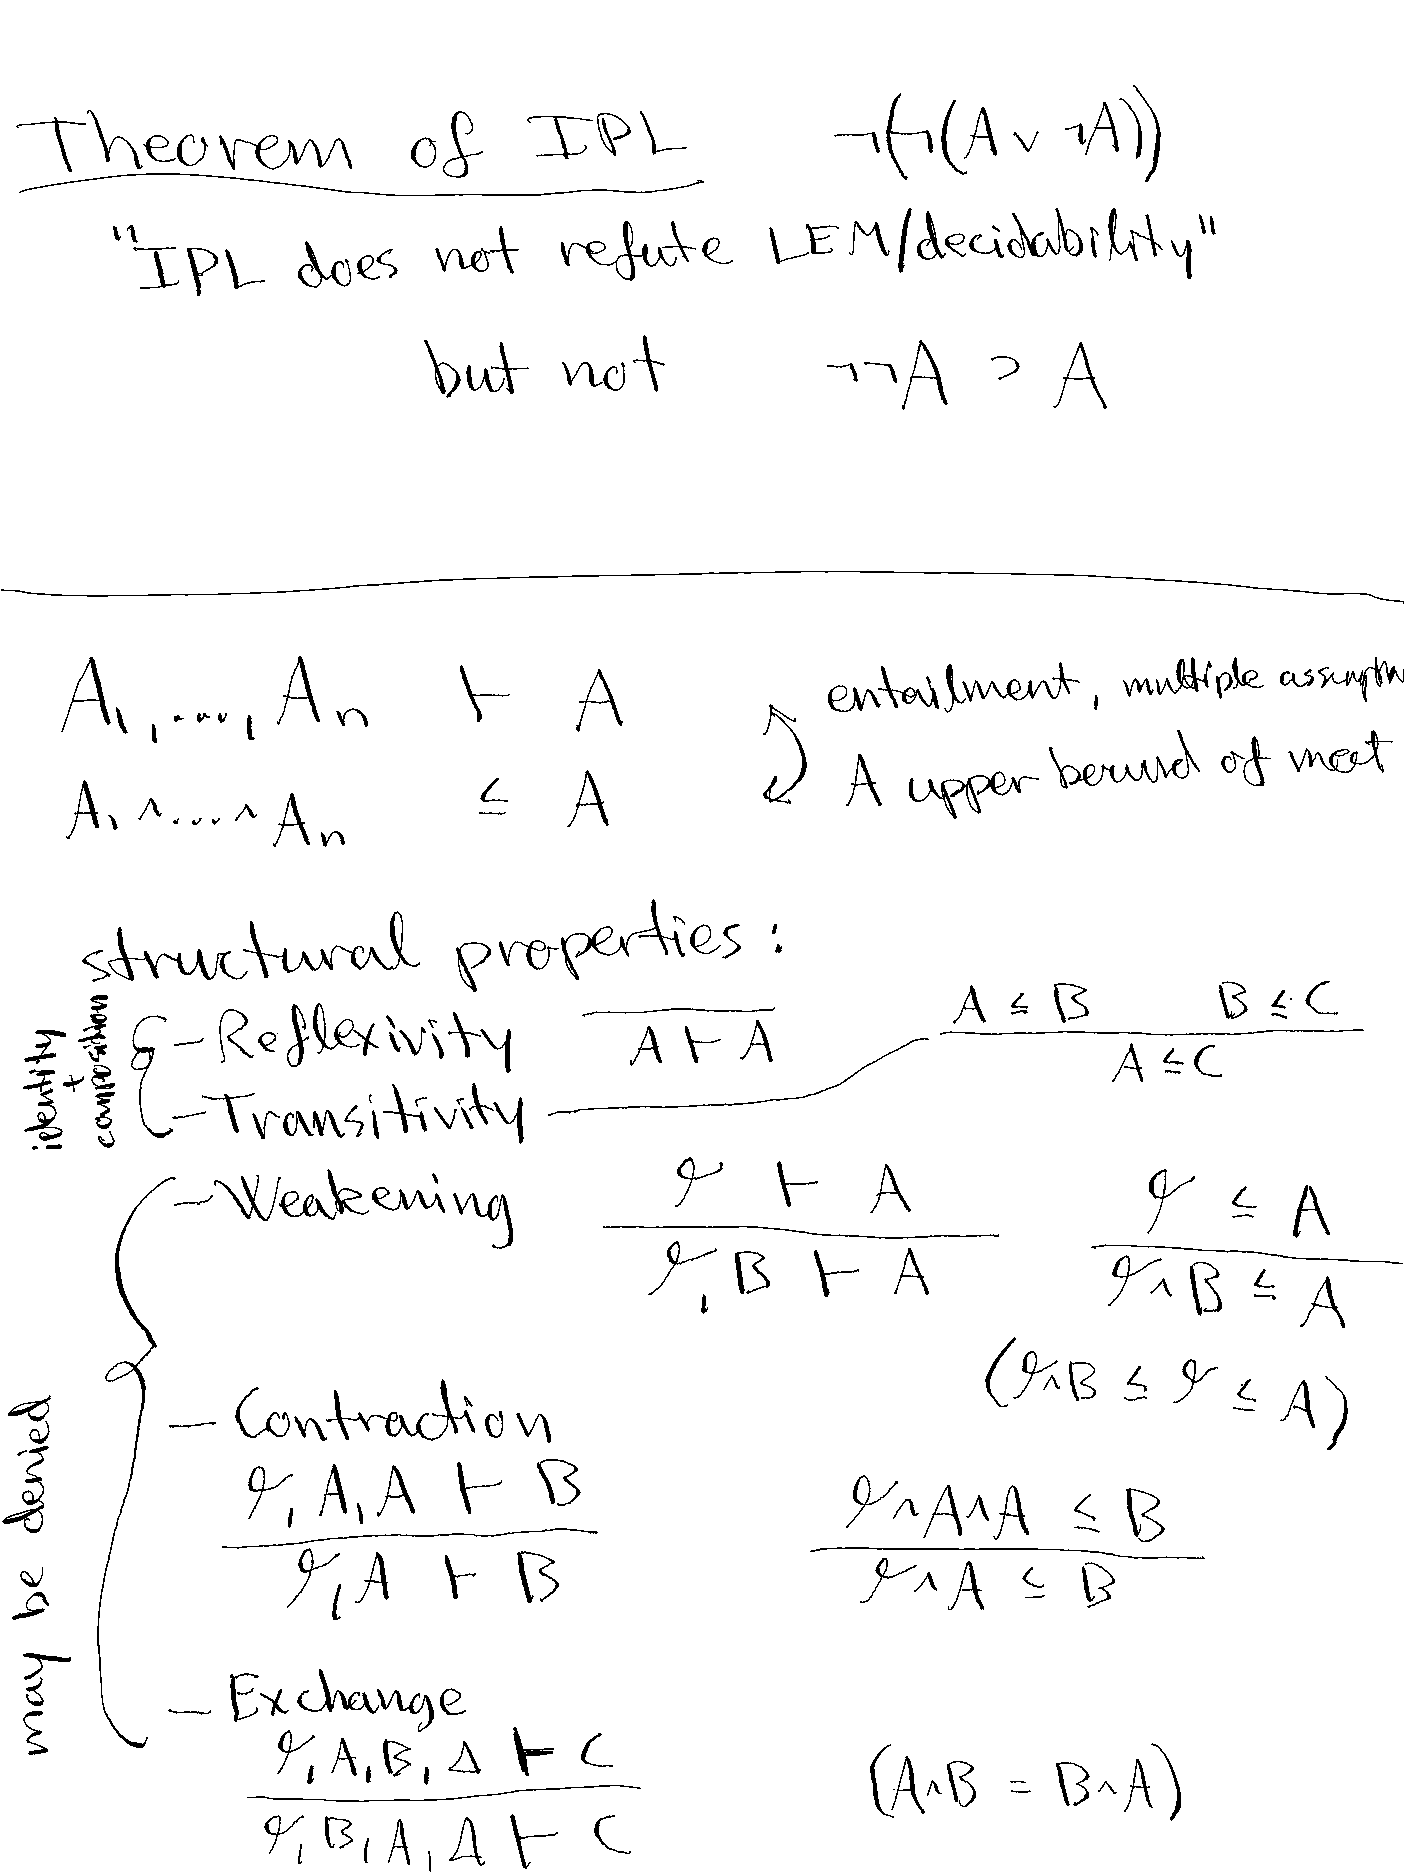 Theorem of IPL ¬(¬(A ∨ ¬A))
"IPL does not refute LEM/decidability"
but not ¬¬A ⊃ A
A₁, ..., Aₙ ⊢ A entailment, multiple assumption
A₁ ∧ ... ∧ Aₙ ≤ A A upper bound of meet
structural properties:
identity + composition
- Reflexivity A ⊢ A
- Transitivity A ≤ B B ≤ C
A ≤ C
may be denied
- Weakening Γ ⊢ A Γ ≤ A
Γ, B ⊢ A Γ ∧ B ≤ A
(Γ ∧ B ≤ Γ ≤ A)
- Contraction
Γ, A, A ⊢ B Γ ∧ A ∧ A ≤ B
Γ, A ⊢ B Γ ∧ A ≤ B
- Exchange
Γ, A, B, Δ ⊢ C
Γ, B, A, Δ ⊢ C (A ∧ B = B ∧ A)